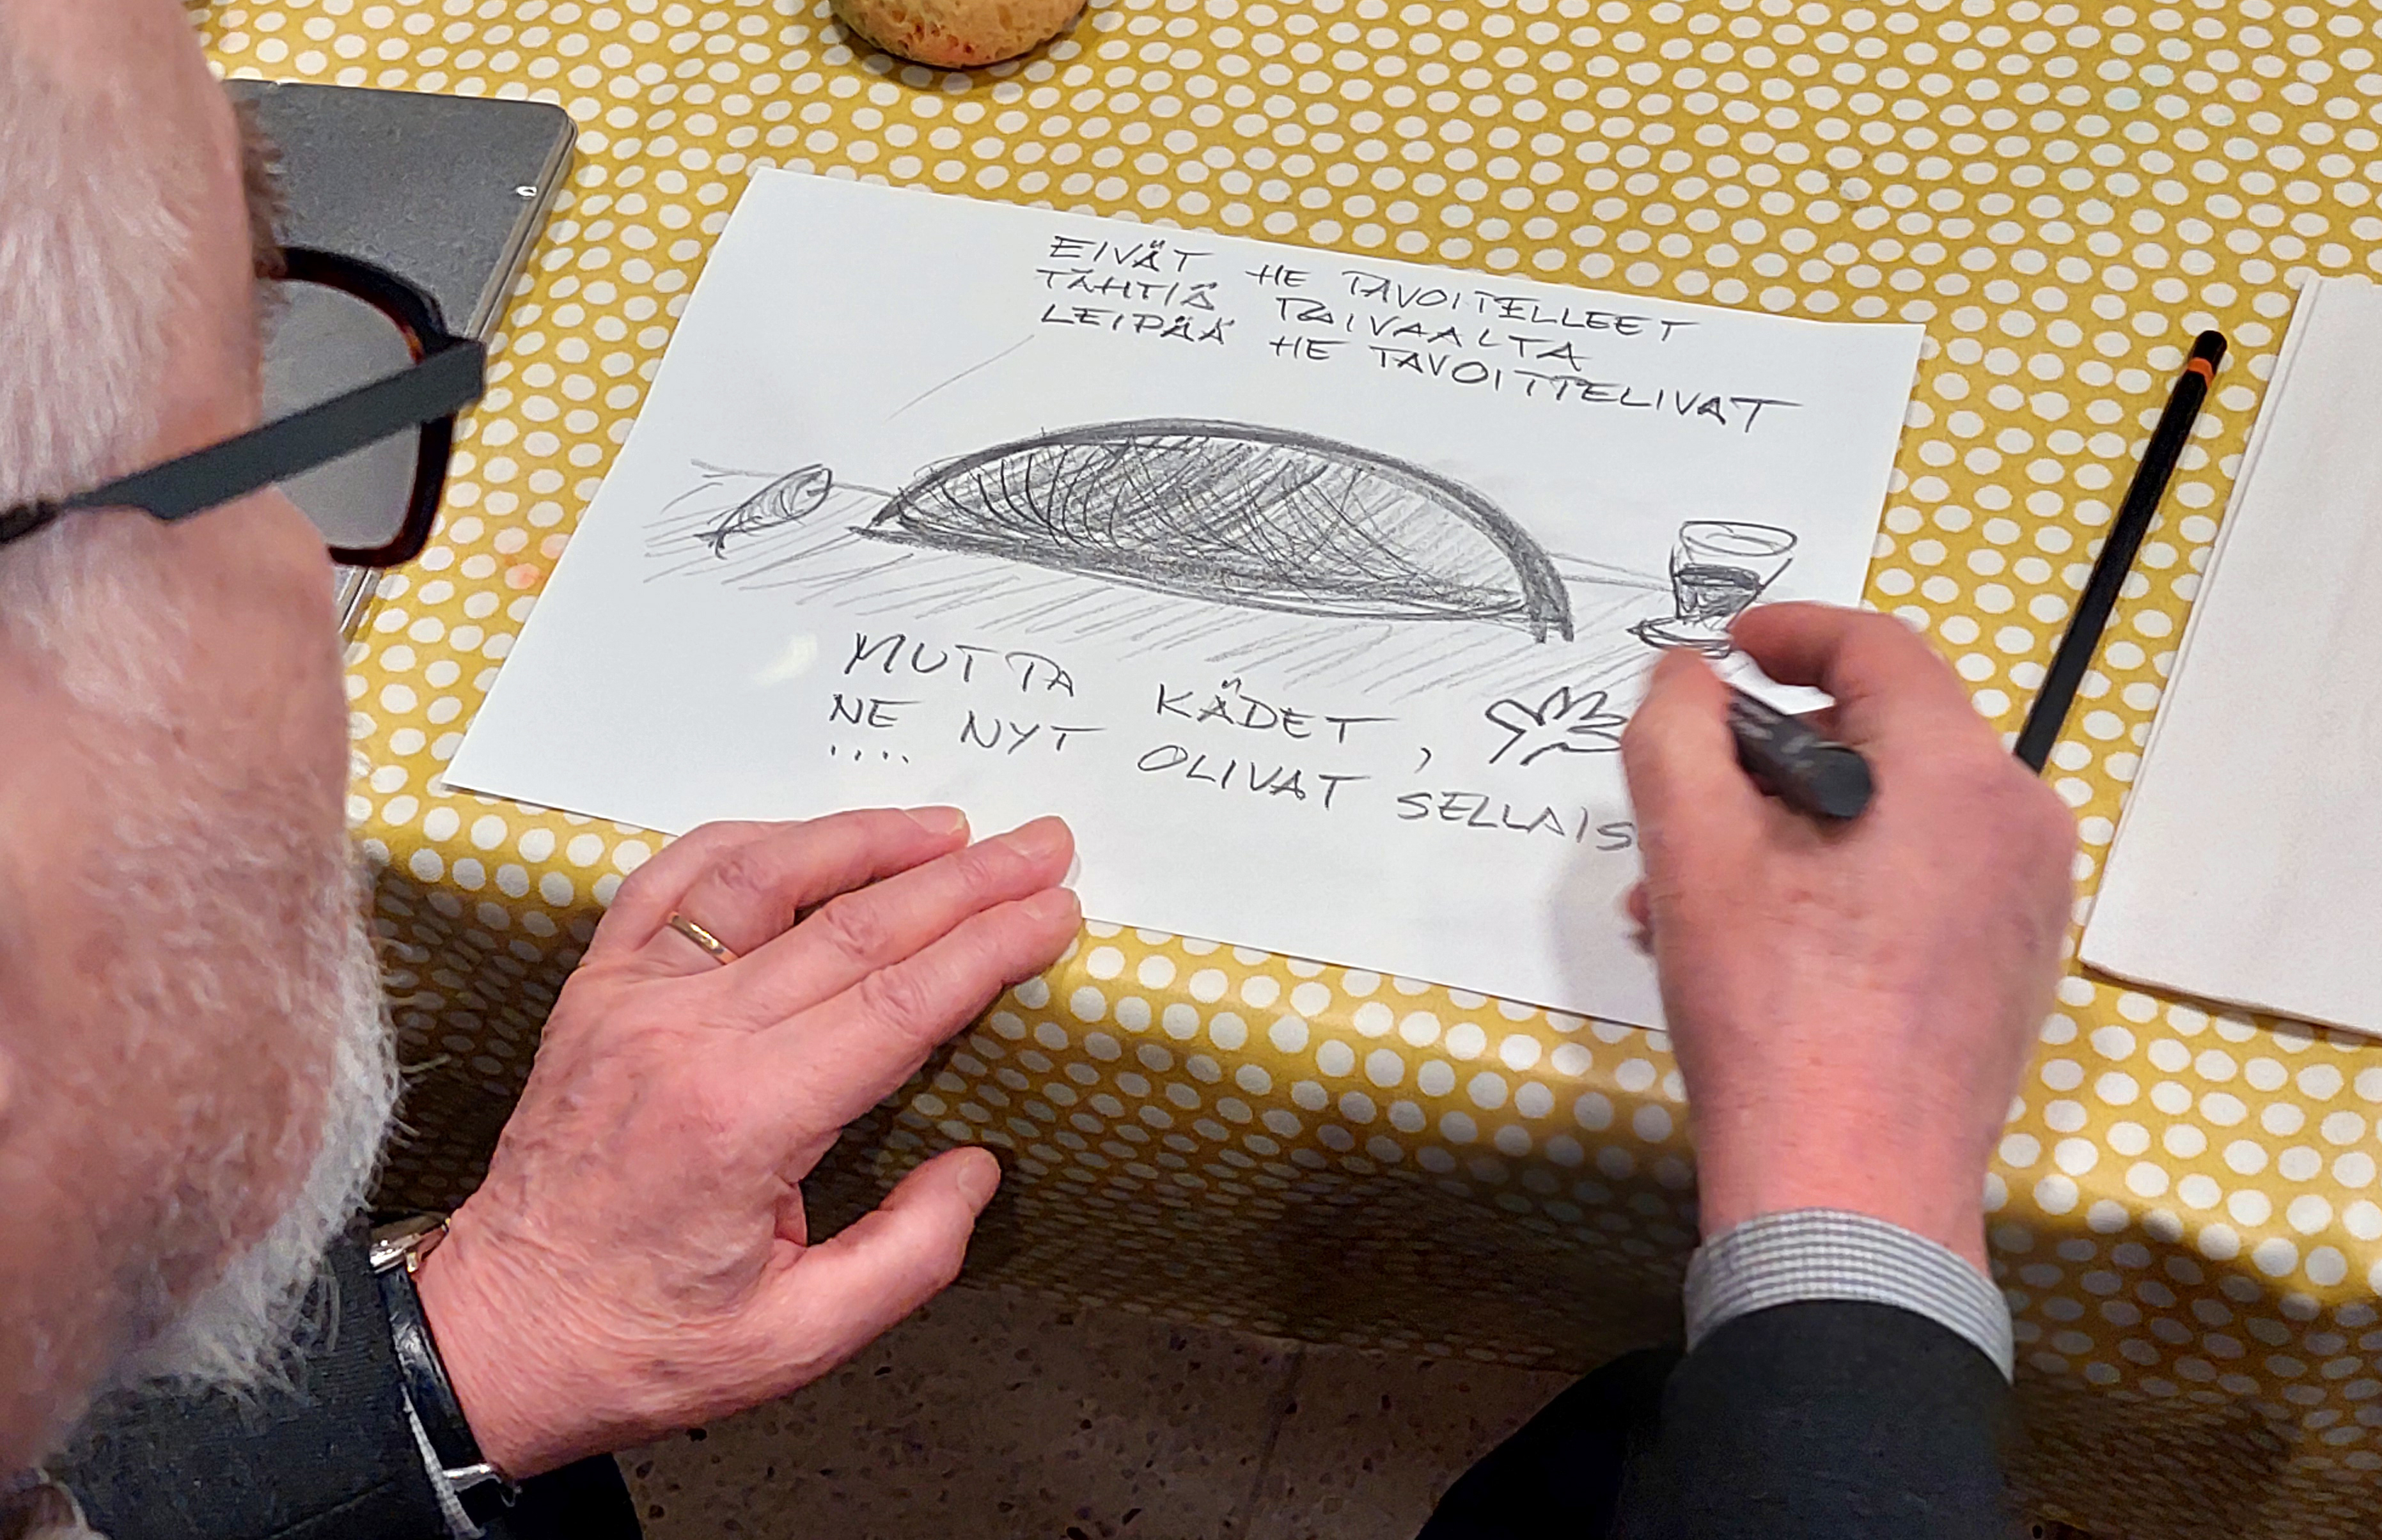 EIVÄT HE TAVOITELLEET
TÄHTIÄ TAIVAALTA
LEIPÄÄ HE TAVOITTELIVAT
MUTTA KÄDET,
NE NYT OLIVAT SELLAIS
....